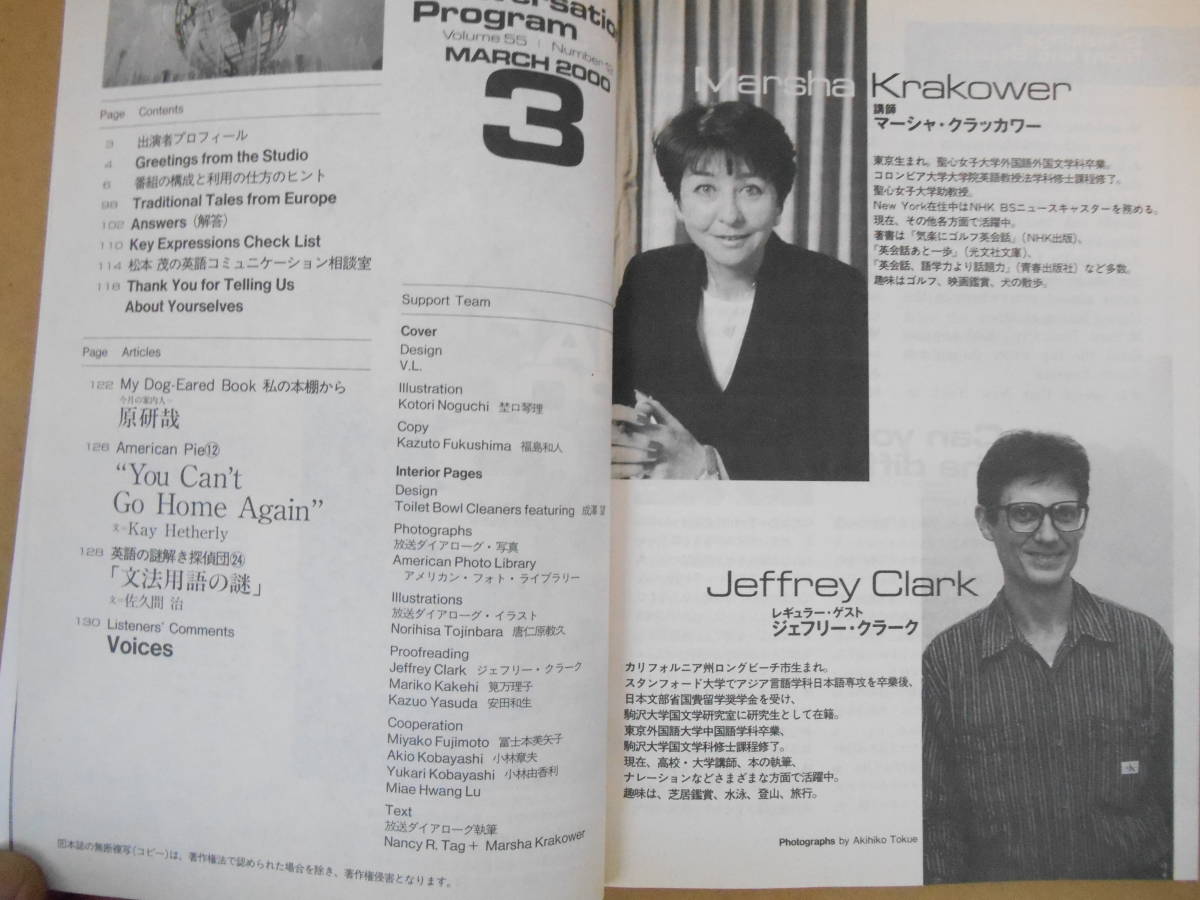 Program
Volume 55 | Number
MARCH 2000
3
Page Contents
3 出演者プロフィール
4 Greetings from the Studio
6 番組の構成と利用の仕方のヒント
98 Traditional Tales from Europe
102 Answers (解答)
110 Key Expressions Check List
114 松本 茂の英語コミュニケーション相談室
118 Thank You for Telling Us
About Yourselves
Page Articles
122 My Dog-Eared Book 私の本棚から
今月の案内人=
原研哉
126 American Pie⑫
“You Can't
Go Home Again”
文=Kay Hetherly
128 英語の謎解き探偵団㉔
「文法用語の謎」
文=佐久間 治
130 Listeners' Comments
Voices
Support Team
Cover
Design
V.L.
Illustration
Kotori Noguchi 埜口琴理
Copy
Kazuto Fukushima 福島和人
Interior Pages
Design
Toilet Bowl Cleaners featuring 成澤 望
Photographs
放送ダイアローグ・写真
American Photo Library
アメリカン・フォト・ライブラリー
Illustrations
放送ダイアローグ・イラスト
Norihisa Tojinbara 唐仁原教久
Proofreading
Jeffrey Clark ジェフリー・クラーク
Mariko Kakehi 筧万理子
Kazuo Yasuda 安田和生
Cooperation
Miyako Fujimoto 冨士本美矢子
Akio Kobayashi 小林章夫
Yukari Kobayashi 小林由香利
Miae Hwang Lu
Text
放送ダイアローグ執筆
Nancy R. Tag + Marsha Krakower
本誌の無断複写(コピー)は、著作権法で認められた場合を除き、著作権侵害となります。
Marsha Krakower
講師
マーシャ・クラッカワー
東京生まれ。聖心女子大学外国語外国文学科卒業。
コロンビア大学大学院英語教授法学科修士課程修了。
聖心女子大学助教授。
New York在住中はNHK BSニュースキャスターを務める。
現在、その他各方面で活躍中。
著書は「気楽にゴルフ英会話」(NHK出版)、
「英会話あと一歩」(光文社文庫)、
「英会話、語学力より話題力」(青春出版社)など多数。
趣味はゴルフ、映画鑑賞、犬の散歩。
Jeffrey Clark
レギュラー・ゲスト
ジェフリー・クラーク
カリフォルニア州ロングビーチ市生まれ。
スタンフォード大学でアジア言語学科日本語専攻を卒業後、
日本文部省国費留学奨学金を受け、
駒沢大学国文学研究室に研究生として在籍。
東京外国語大学中国語学科卒業、
駒沢大学国文学科修士課程修了。
現在、高校・大学講師、本の執筆、
ナレーションなどさまざまな方面で活躍中。
趣味は、芝居鑑賞、水泳、登山、旅行。
Photographs by Akihiko Tokue